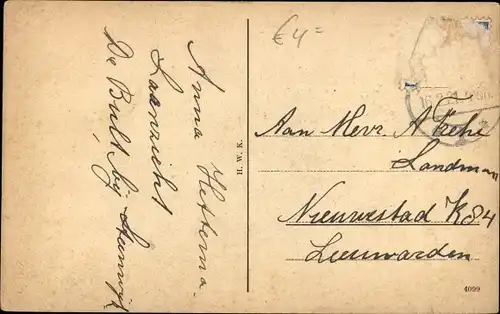 €4=
Anna Hettema
Laanzicht
De Bult bij Steenwijk
H. W. K.
Aan Mevr. A
Landman
Nieuwestad K84
Leeuwarden
4099